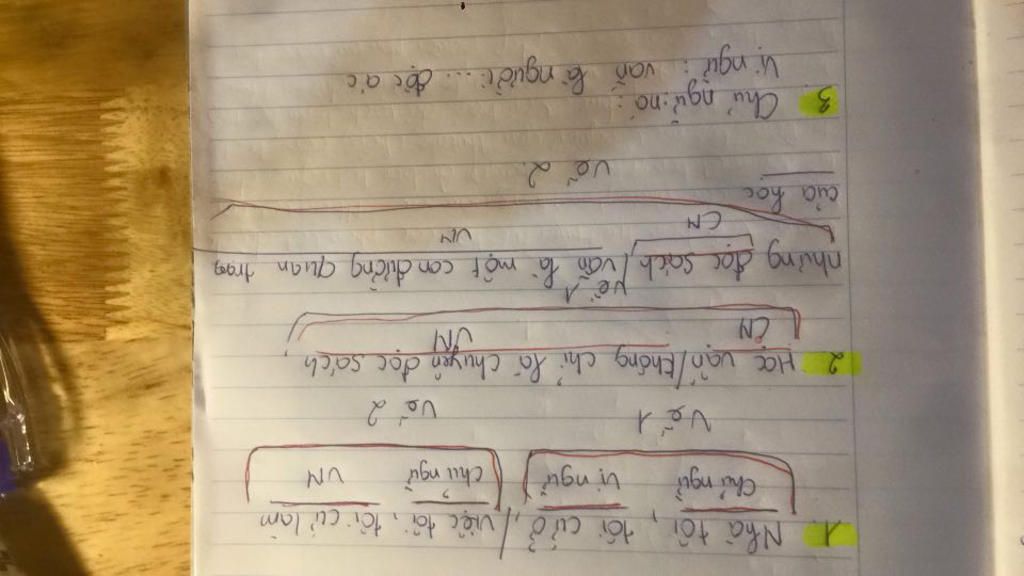 1. Nhà tôi, tôi cứ ở, / việc tôi, tôi cứ làm
Chủ ngữ Vị ngữ Chủ ngữ VN
Vế 1 Vế 2
2 Học vấn / không chỉ là chuyện đọc sách
CN VN
Vế 1
nhưng đọc sách / vẫn là một con đường quan trọng
CN VN
của học
Vế 2.
3 Chủ ngữ: nó
Vị ngữ: vẫn là người... độc ác